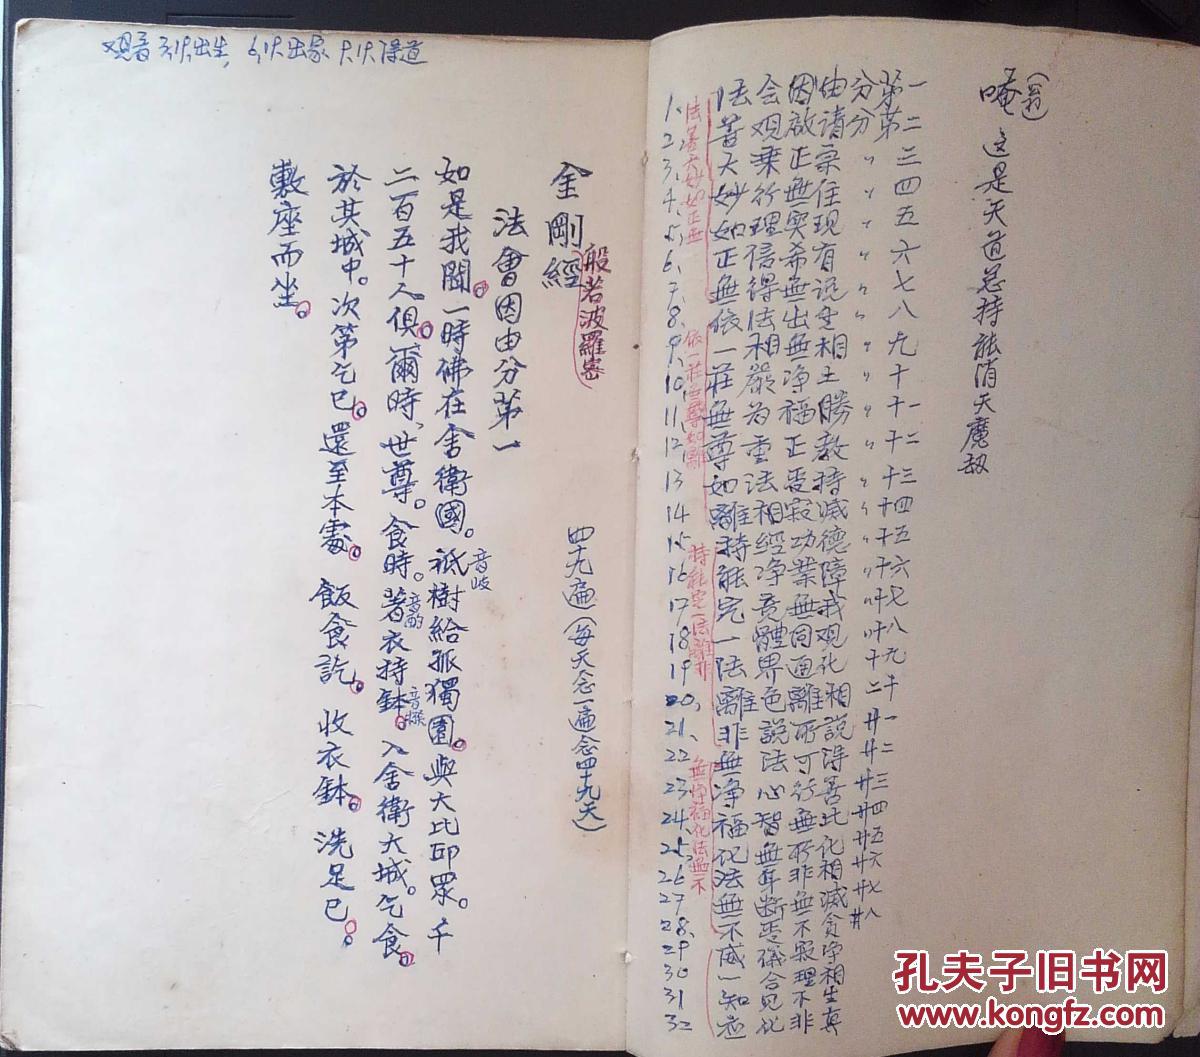 唵(翁) 这是天道总持能消天魔劫
一二三四五六七八九十十一十二十三十四十五十六十七十八十九二十廿一廿二廿三廿四廿五廿六廿七廿八
第第
分分〃〃〃〃〃〃〃〃〃〃〃〃
由请宗住现有说生相土勝教持滅德障我观化相說得善比化相滅貪净相生真
因啟正無実希無出無净福正受寂功業無同通離所可行無所非無不寂理不非
会观乘行理信得法相嚴为重法相經净竟體界色説法心智無断受儀合见化
法善大妙如正無依一莊無尊如離持能究一法離非無净福化法無不威一知应
法善大妙如正無
依一莊無尊如離
持能究一法離非
無净福化法無不
1、
2、
3、
4、
5、
6、
7、
8、
9、
10、
11、
12、
13
14
15
16
17
18
19
20、
21、
22
23
24、
25、
26
27
28、
29
30
31
32
观音2,19,出生, 6,19出家 9,19得道
金剛經
般若波羅密
四十九遍(每天念一遍念四十九天)
法會因由分第一
如是我聞。一時佛在舍衛國。祇樹給孤獨園。與大比邱眾。千
音岐
二百五十人俱。爾時、世尊。食時。著衣持鉢。入舍衛大城。乞食。
音酌
音撥
於其城中。次第乞已。還至本處。飯食訖。收衣鉢。洗足已。
敷座而坐。
孔夫子旧书网
www.kongfz.com